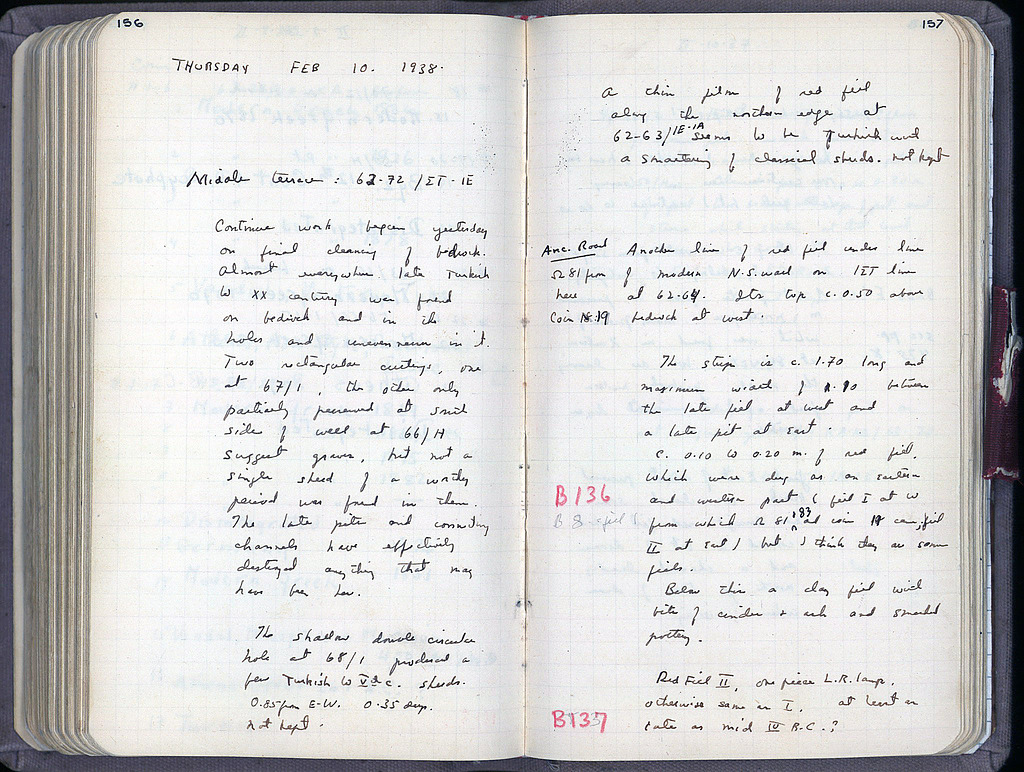 156
THURSDAY FEB 10. 1938.
Middle terrace : 62-72 / ΣT - IE
Continue work begun yesterday
on final cleaning of bedrock.
Almost everywhere late Turkish
to XX century was found
on bedrock and in the
holes and unevenness in it.
Two rectangular cuttings, one
at 67/I, the other only
partially preserved at south
side of well at 66/H
suggest graves, but not a
single sherd of a worthy
period was found in them.
The late pits and connecting
channels have effectively
destroyed anything that may
have been here.
The shallow double circular
hole at 68/I produced a
few Turkish to c. sherds.
0.85 m E-W. 0.35 deep.
Not kept.
157
A thin film of red fill
along the northern edge at
62-63/IE-IA seems to be Turkish with
a smattering of classical sherds. Not kept
Anc. Road
Ω 81 from
here
Coin 19
Another line of red fill under line
of modern N.S. wall on IΣT line
at 62-64. Its top c. 0.50 above
bedrock at west.
The strip is c. 1.70 long and
maximum width of between
the late fill at west and
a late pit at East.
c. 0.10 to 0.20 m. of red fill,
which were dug as an eastern
and western part (fill I at W
from which Ω 81, 83 and coin came, fill
II at East) but I think they are same
fills.
Below this a clay fill with
bits of cinder & ash and
pottery.
B 136
B
Red Fill II, one piece L.R. lamp,
otherwise same as I, at least as
late as mid IV B.C.?
B 137